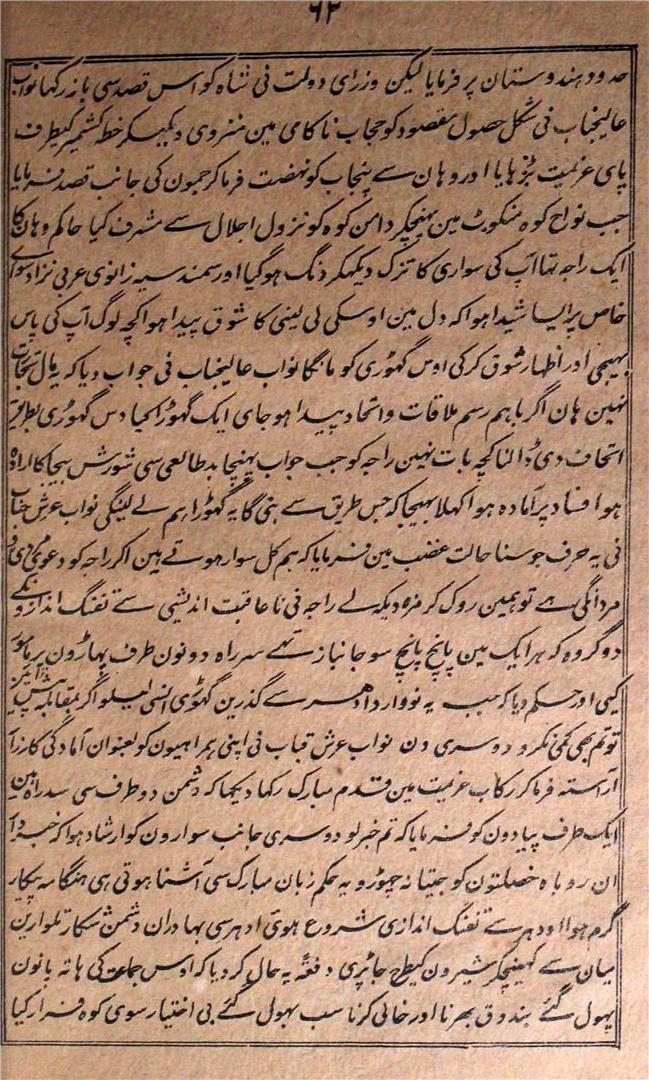 ۶۲
حدود ہندوستان پر فرمایا لیکن وزرای دولت نی شاہ کو اس قصد سی باز رکہا نواب
عالیجناب نی شکل حصول مقصود کو حجاب ناکامی مین منزوی دیکہکر خطہ کشمیر کیطرف
پای عزیمت بڑہایا اور وہان سے پنجاب کو نہضت فرما کر جمون کی جانب قصد فرمایا
جب نواح کوہ منکوٹ مین پہنچکر دامن کوہ کو نزول اجلال سے مشرف کیا حاکم وہان کا
ایک راجہ تہا آپ کی سواری کا تزک دیکہکر دنگ ہوگیا اور سمند سیہ زانوی عربی نژاد سواے
خاص پر ایسا شیدا ہوا کہ دل مین اوسکی لی لینی کا شوق پیدا ہوا کچہ لوگ آپ کی پاس
بہیجی اور اظہار شوق کرکی اوس گہوڑی کو مانگا نواب عالیجناب نی جواب دیا کہ یہ مال تجارت
نہین ہان اگر باہم رسم ملاقات و اتحاد پیدا ہو جای ایک گہوڑا کیا دس گہوڑی بطریق
اتحاف دی ڈالنا کچہ بات نہین راجہ کو جب جواب پہنچا بد طالعی سی شورش بیجا کا ارادہ
ہوا فساد پر آمادہ ہوا کہلا بہیجا کہ جس طریق سے بنی گا یہ گہوڑا ہم لے لینگی نواب عرش جناب
نی یہ حرف جو سنا حالت غضب مین فرمایا کہ ہم کل سوار ہوتے ہین اگر راجہ کو دعوی
مردانگی ہے تو ہمین روک کر مزہ دیکہ لے راجہ نی ناعاقبت اندیشی سے تفنگ اندازونکے
دو گروہ کہ ہر ایک مین پانچ پانچ سو جانباز تہے سر راہ دونون طرف پہاڑون پر مامور
کیی اور حکم دیا کہ جب یہ نووارد ادہر سے گذرین گہوڑی انسی لیلو اگر بمقابلہ پیش آئین
تو تم بھی کمی نکرو دوسری دن نواب عرش قباب نی اپنی ہمراہیون کو بعنوان آمادگی کارزار
آراستہ فرما کر رکاب عزیمت مین قدم مبارک رکہا دیکہا کہ دشمن دو طرف سی سد راہ ہین
ایک طرف پیادون کو فرمایا کہ تم خبر لو دوسری جانب سوارون کو ارشاد ہوا کہ خبردار
ان روباہ خصلتون کو جیتا نہ چہوڑو یہ حکم زبان مبارک سی آشنا ہوتی ہی ہنگامہ پیکار
گرم ہوا اودہر سے تفنگ اندازی شروع ہوئی ادہر سی بہادران دشمن شکار تلوارین
میان سے کہینچکر شیرون کیطرح جا پڑی دفعۃً یہ حال کر دیا کہ اوس جماعت کی ہاتہ پانون
پہول گئے بندوق بہرنا اور خالی کرنا سب بہول گئے بی اختیار سوی کوہ فرار کیا